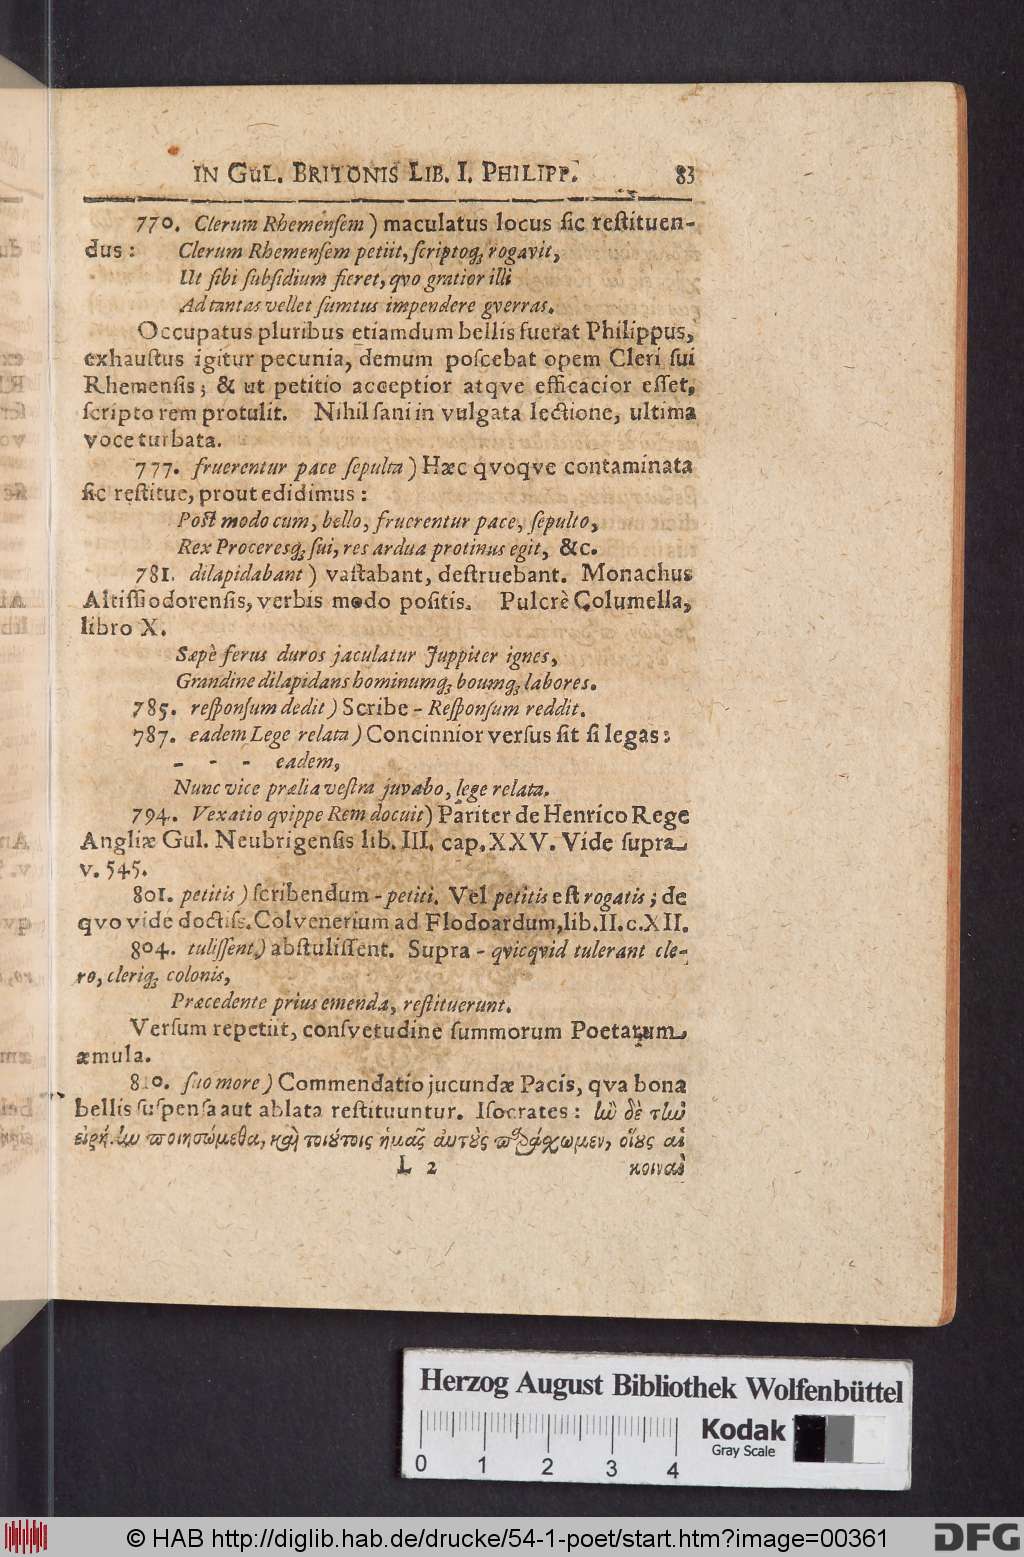 IN GUL. BRITONIS LIB. I. PHILIPP. 83
770. Clerum Rhemensem ) maculatus locus sic restituen-
dus: Clerum Rhemensem petiit, scriptoq; rogavit,
Ut sibi subsidium fieret, qvo gratior illi
Ad tantas vellet sumtus impendere gverras.
Occupatus pluribus etiamdum bellis fuerat Philippus,
exhaustus igitur pecunia, demum poscebat opem Cleri sui
Rhemensis; & ut petitio acceptior atqve efficacior esset,
scripto rem protulit. Nihil sani in vulgata lectione, ultima
voce turbata.
777. fruerentur pace sepulta ) Hæc qvoqve contaminata
sic restitue, prout edidimus:
Post modo cum, bello, fruerentur pace, sepulto,
Rex Proceresq; sui, res ardua protinus egit, &c.
781. dilapidabant ) vastabant, destruebant. Monachus
Altissiodorensis, verbis modo positis. Pulcrè Columella,
libro X.
Sæpè ferus duros jaculatur Juppiter ignes,
Grandine dilapidans hominumq; boumq; labores.
785. responsum dedit ) Scribe - Responsum reddit.
787. eadem Lege relata ) Concinnior versus sit si legas:
- - - eadem,
Nunc vice prælia vestra juvabo, lege relata.
794. Vexatio qvippe Rem docuit ) Pariter de Henrico Rege
Angliæ Gul. Neubrigensis lib. III. cap. XXV. Vide supra
v. 545.
801. petitis ) scribendum - petiti. Vel petitis est rogatis; de
qvo vide doctiss. Colvenerium ad Flodoardum, lib. II. c. XII.
804. tulissent. ) abstulissent. Supra - qvicqvid tulerant cle-
ro, cleriq; colonis,
Præcedente prius emenda, restituerunt.
Versum repetiit, consvetudine summorum Poetarum
æmula.
810. suo more ) Commendatio jucundæ Pacis, qva bona
bellis suspensa aut ablata restituuntur. Isocrates: ἢν δὲ τὴν
εἰρήνην ποιησώμεθα, καὶ τοιούτοις ἡμᾶς αὐτοὺς παράσχωμεν, οἵους αἱ
L 2 κοιναὶ
Herzog August Bibliothek Wolfenbüttel
Kodak
Gray Scale
0 1 2 3 4
© HAB http://diglib.hab.de/drucke/54-1-poet/start.htm?image=00361
DFG